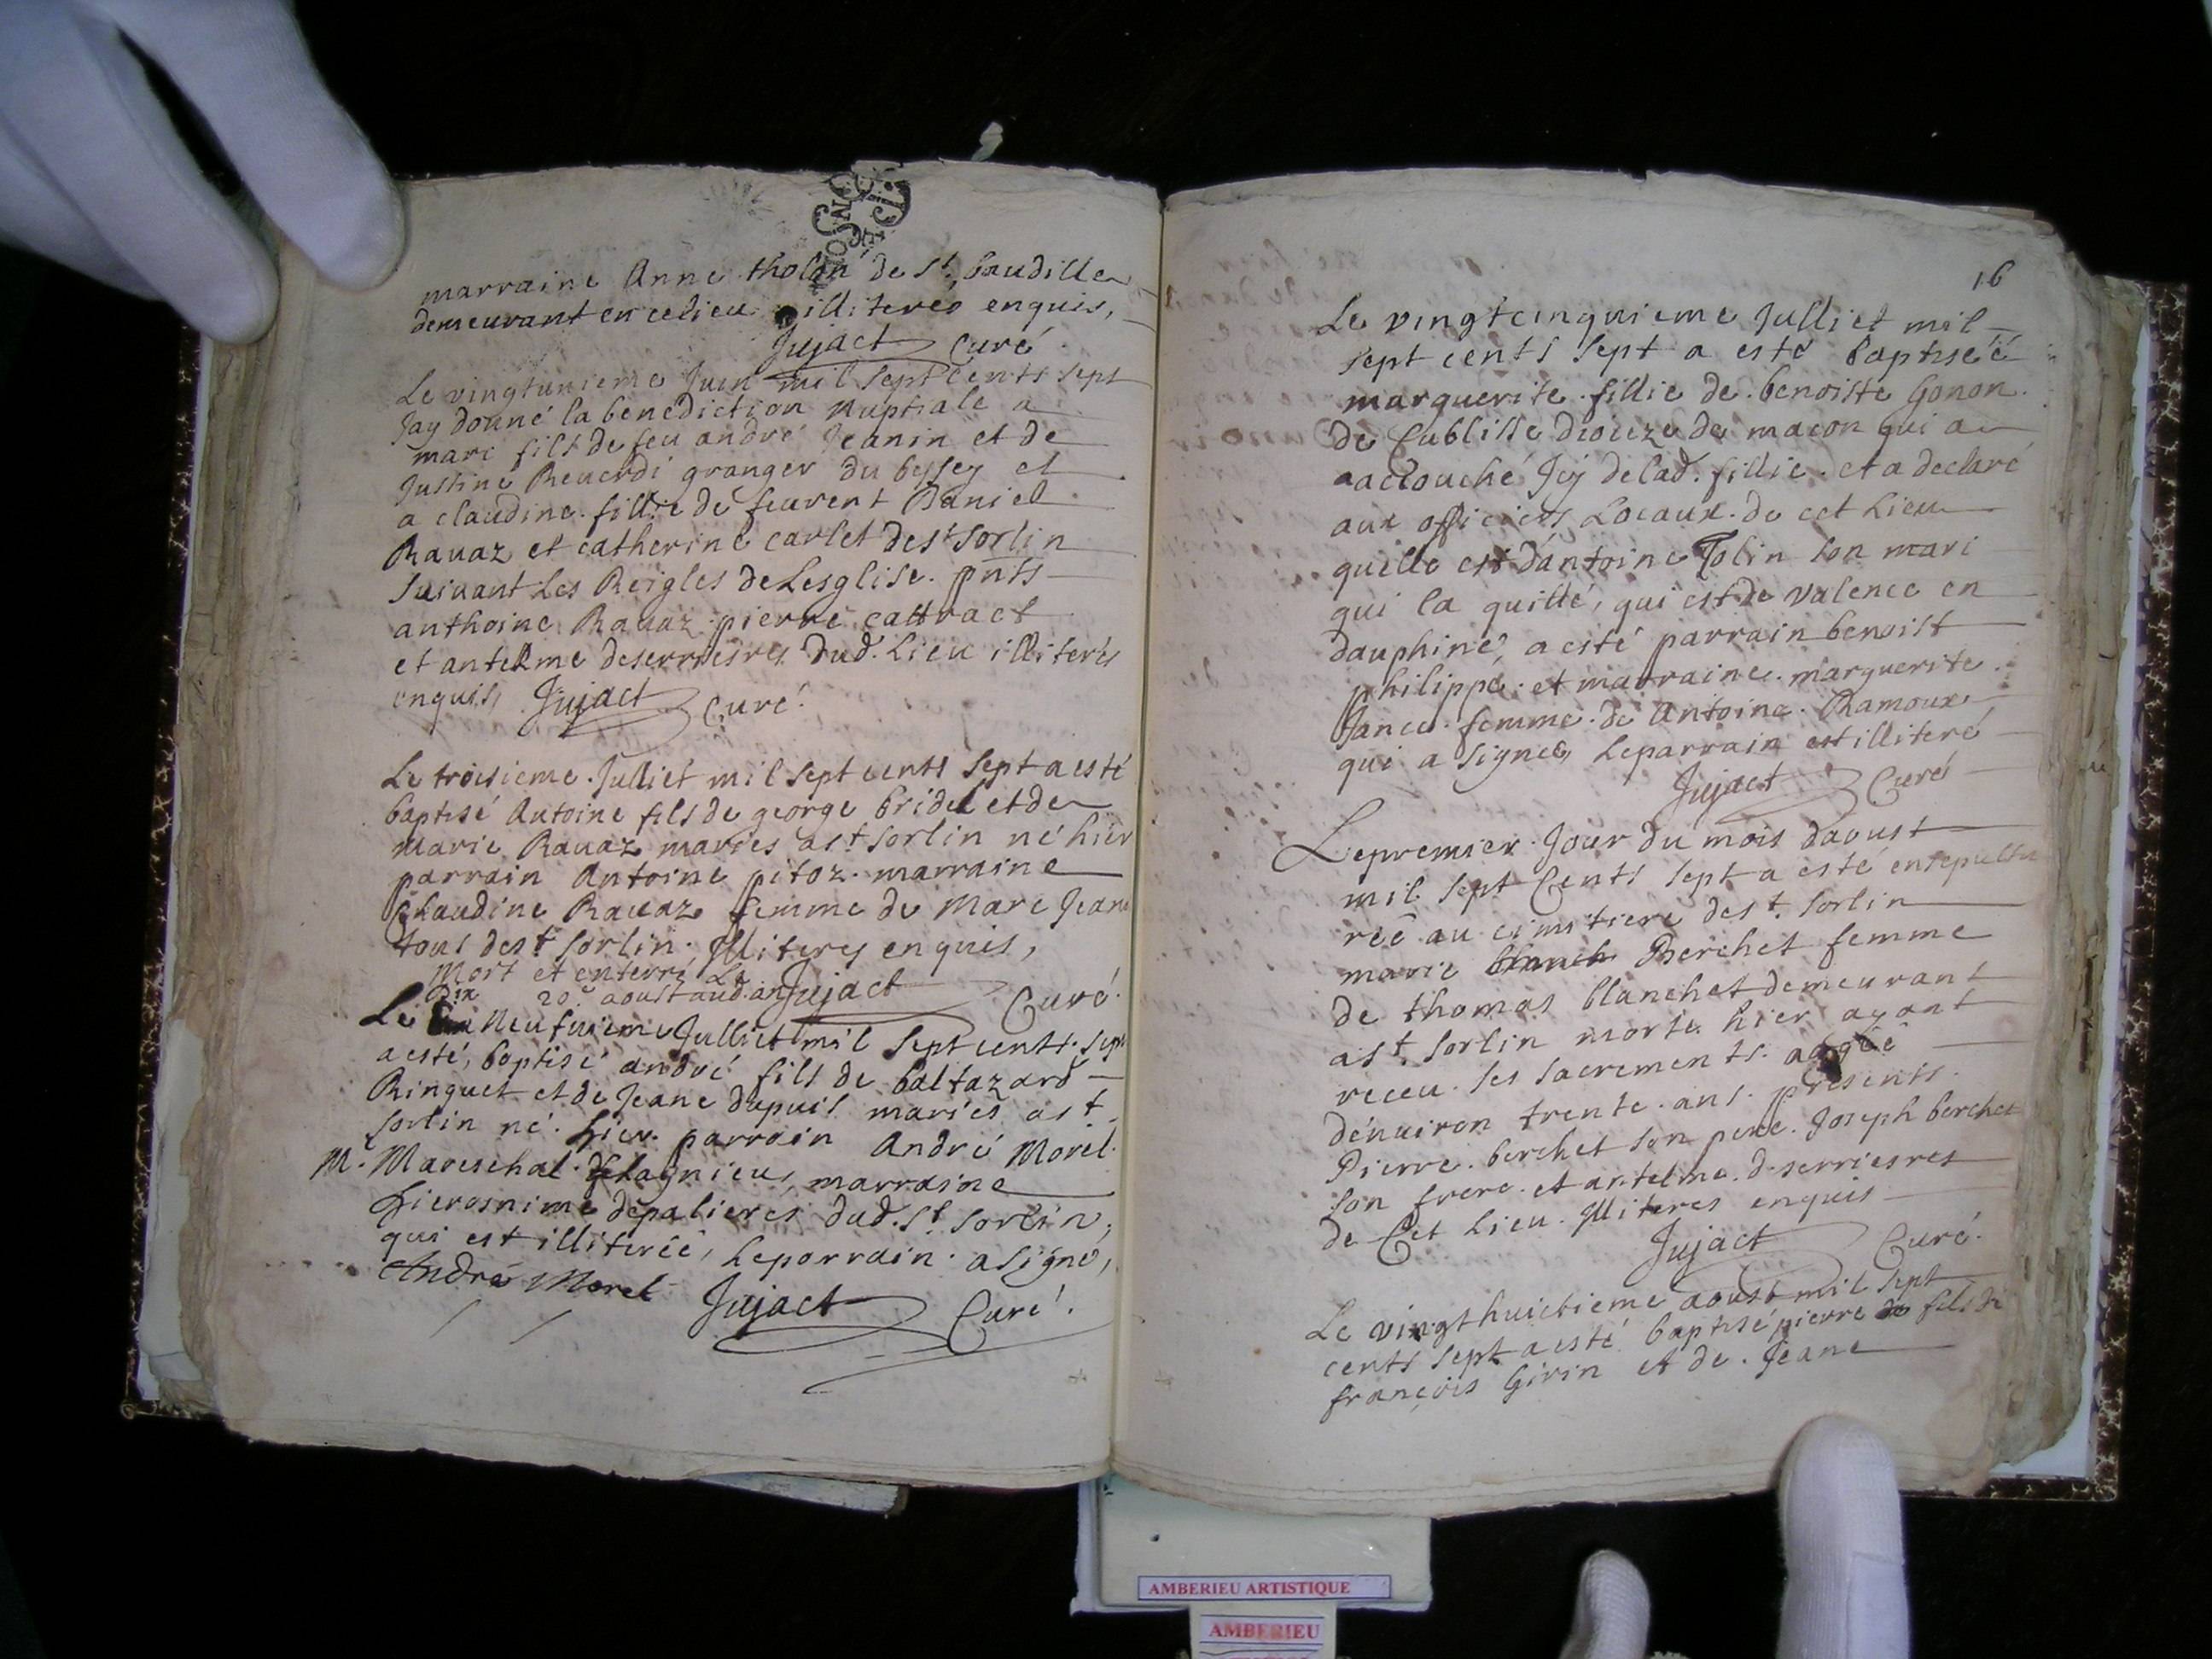 marraine Anne tholon de St. baudille
demeurant en ce lieu illiterés enquis,
Jujact Curé
Le vingtunieme Juin mil sept cents sept
Jay donné la benediction nuptiale a
mari fils de feu andré Jeanin et de
Justine Reverdi granger du bessey et
a claudine fillie de feu Daniel
Ravaz et catherine carlet de st sorlin
suivant Les Reigles de Lesglise. pnts
anthoine Ravaz pierre cattract
et antelme deserriesres dud. Lieu illiterés
enquis, Jujact Curé.
Le troisieme Julliet mil sept cents sept a esté
baptisé Antoine fils de george bridel et de
Marie Ravaz mariés a st sorlin né hier
parrain Antoine pitoz. marraine
Claudine Ravaz femme de Marc Jean
tous de st sorlin. Illiteres enquis,
Mort et enterré Le
20e aoust aud. an Jujact Curé.
Le Dix Neufvieme Julliet mil sept cents sept
a esté, baptisé andré fils de baltazard
Ringuet et de Jeane dupuis mariés a st
sorlin né. hier. parrain André Morel
M. Mareschal de Lagnieu, marraine
hierosnime depalieres dud. st sorlin,
qui est illiterée, Le parrain a signé,
André Morel Jujact Curé.
16
Le vingtcinquieme Julliet mil
sept cents sept a esté baptiseé
marguerite fillie de benoiste Gonon
de Cublisse dioieze de macon qui a
aaclouché Jcy de lad. fillie. et a declaré
aux officiers Locaux de cet Lieu
quelle est d'antoine Tolin son mari
qui la quitté, qui est de valence en
dauphiné, a esté parrain benoist
philippe et marraine marguerite
Jance femme de Antoine Ramoux
qui a signée, Le parrain est illiteré
Jujact Curé
Le premier Jour du mois daoust
mil sept Cents sept a esté ensepultu
reé au cimitiere de st. sorlin
marie Berchet femme
de thomas blanchet demeurant
a st. sorlin morte hier ayant
receu ses sacrements. ageé
d'enuiron trente ans. presents
Pierre berchet son pere. Joseph berchet
son frere et antelme deserriesres
de Cet Lieu. Illiteres enquis
Jujact Curé.
Le vingthuictieme aoust mil sept
cents sept a esté baptisé pierre fils de
françois Girin et de Jeane
AMBERIEU ARTISTIQUE
AMBERIEU